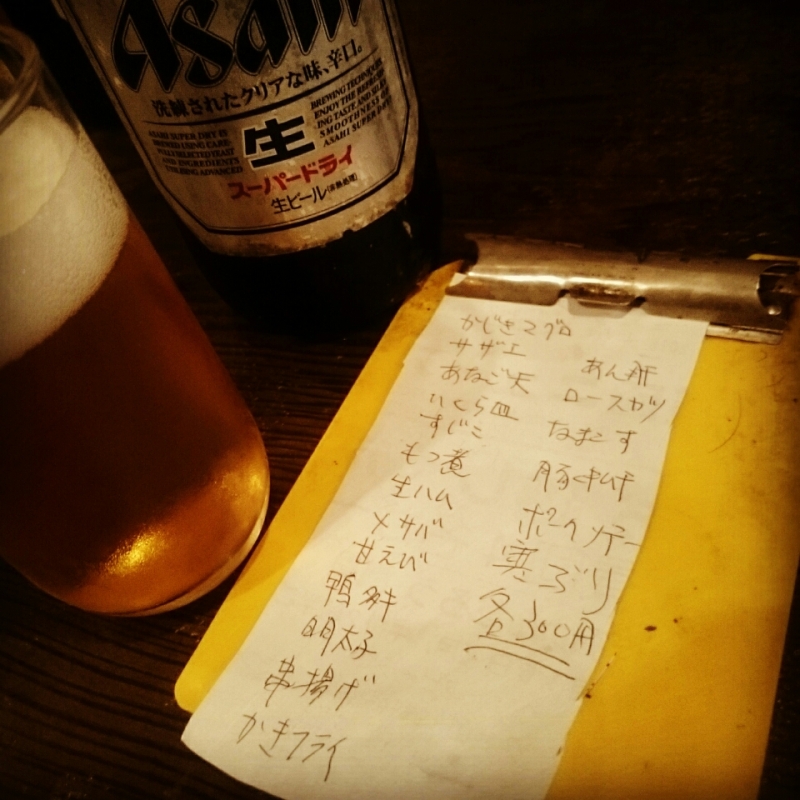 Asahi
洗練されたクリアな味、辛口。
ASAHI SUPER DRY IS
BREWED USING CARE-
FULLY SELECTED YEAST
AND INGREDIENTS
UTILIZING ADVANCED
生
BREWING TECHNIQUES.
ENJOY THE REFRESH-
ING TASTE AND SILKY
SMOOTHNESS OF
ASAHI SUPER DRY
スーパードライ
生ビール(非熱処理)
かじきマグロ
サザエ
あなご天
いくら皿
すじこ
もつ煮
生ハム
メサバ
甘えび
鴨
明太子
串揚げ
かきフライ
あん肝
ロースカツ
なまこす
豚キムチ
ポークソテー
寒ぶり
各300円